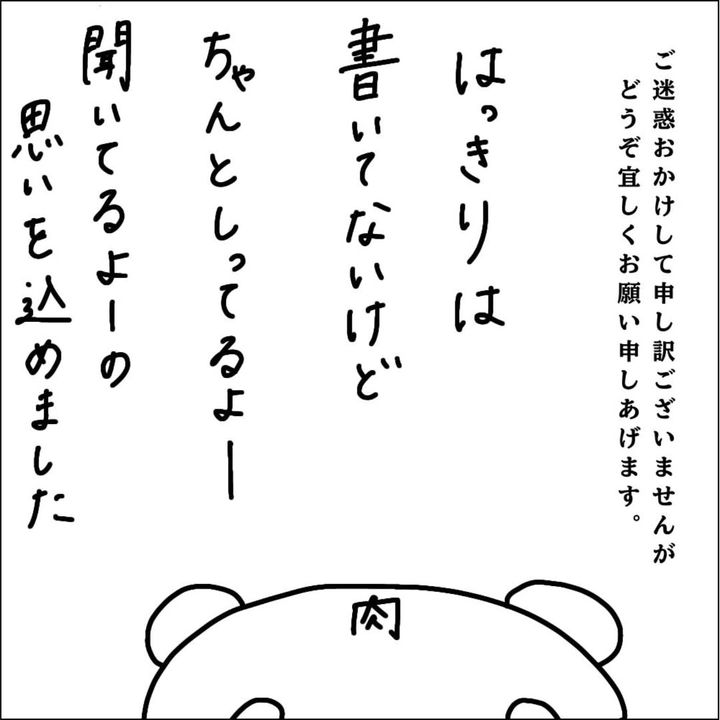 ご迷惑おかけして申し訳ございませんが
どうぞ宜しくお願い申しあげます。
はっきりは
書いてないけど
ちゃんとしってるよー
聞いてるよーの
思いを込めました
肉